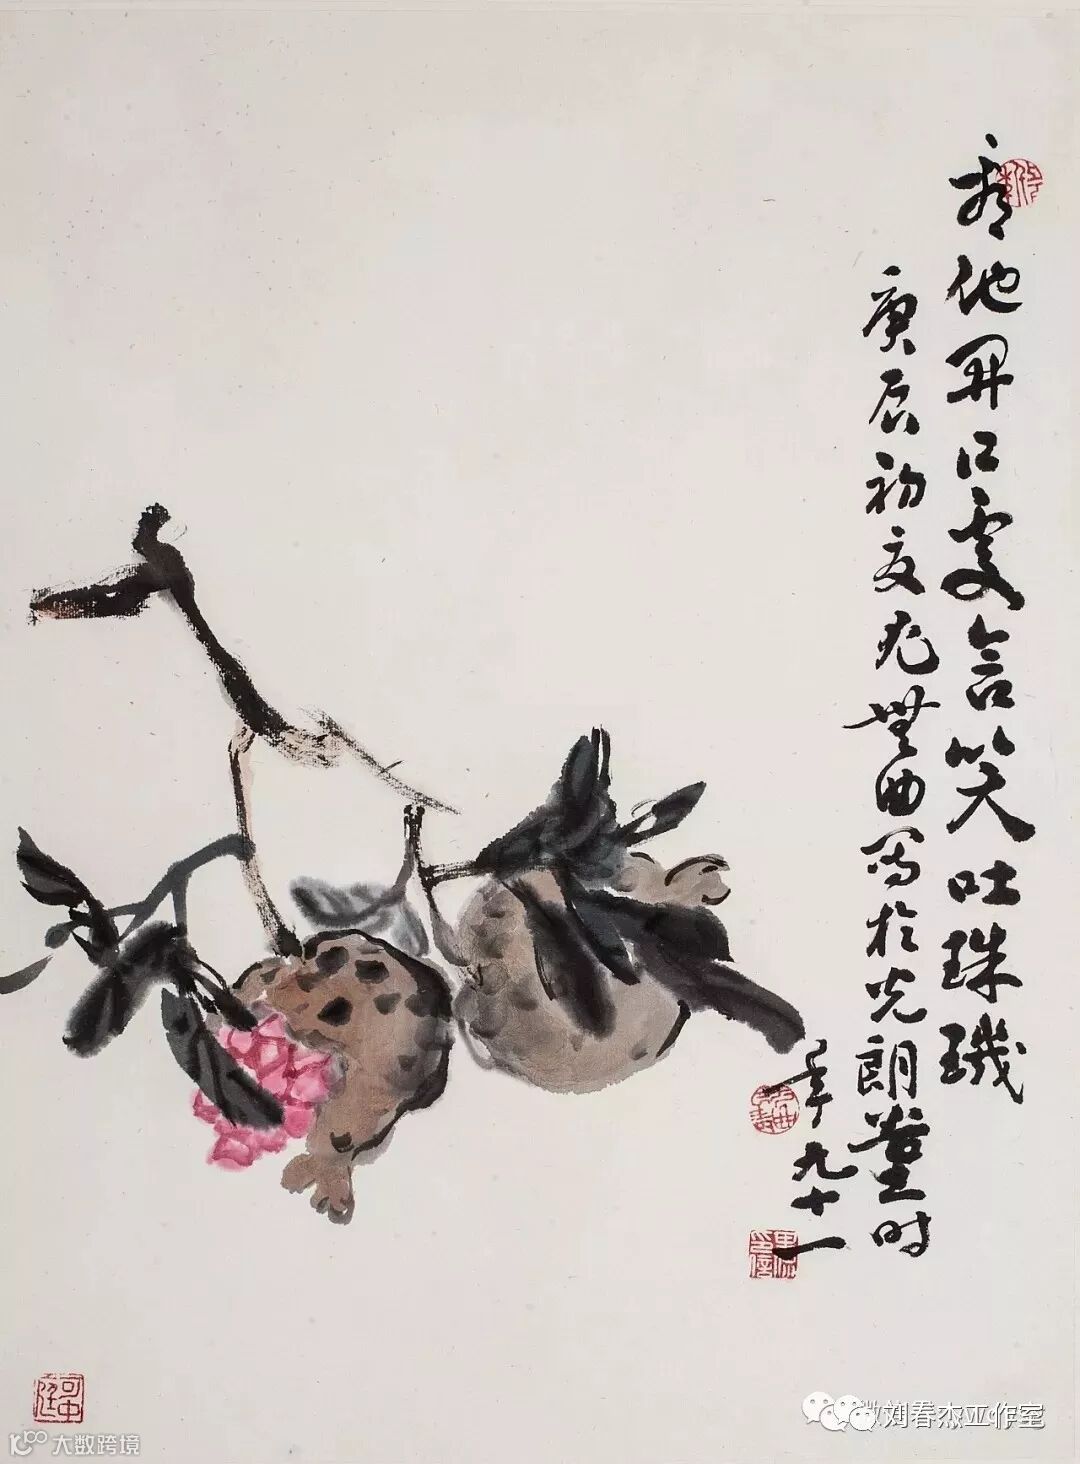 看他開口處含笑吐珠璣
庚辰初夏尤無曲寫於光朗堂時
年九十一
可中庭
大数跨境
刘春杰工作室